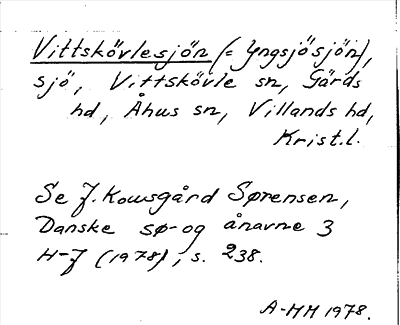 Vittskövlesjön (= Yngsjösjön),
sjö, Vittskövle sn, Gärds
hd, Åhus sn, Villands hd,
Krist.l.
Se J. Kousgård Sørensen,
Danske sø- og ånavne 3
H-J (1978), s. 238.
A-MH 1978.